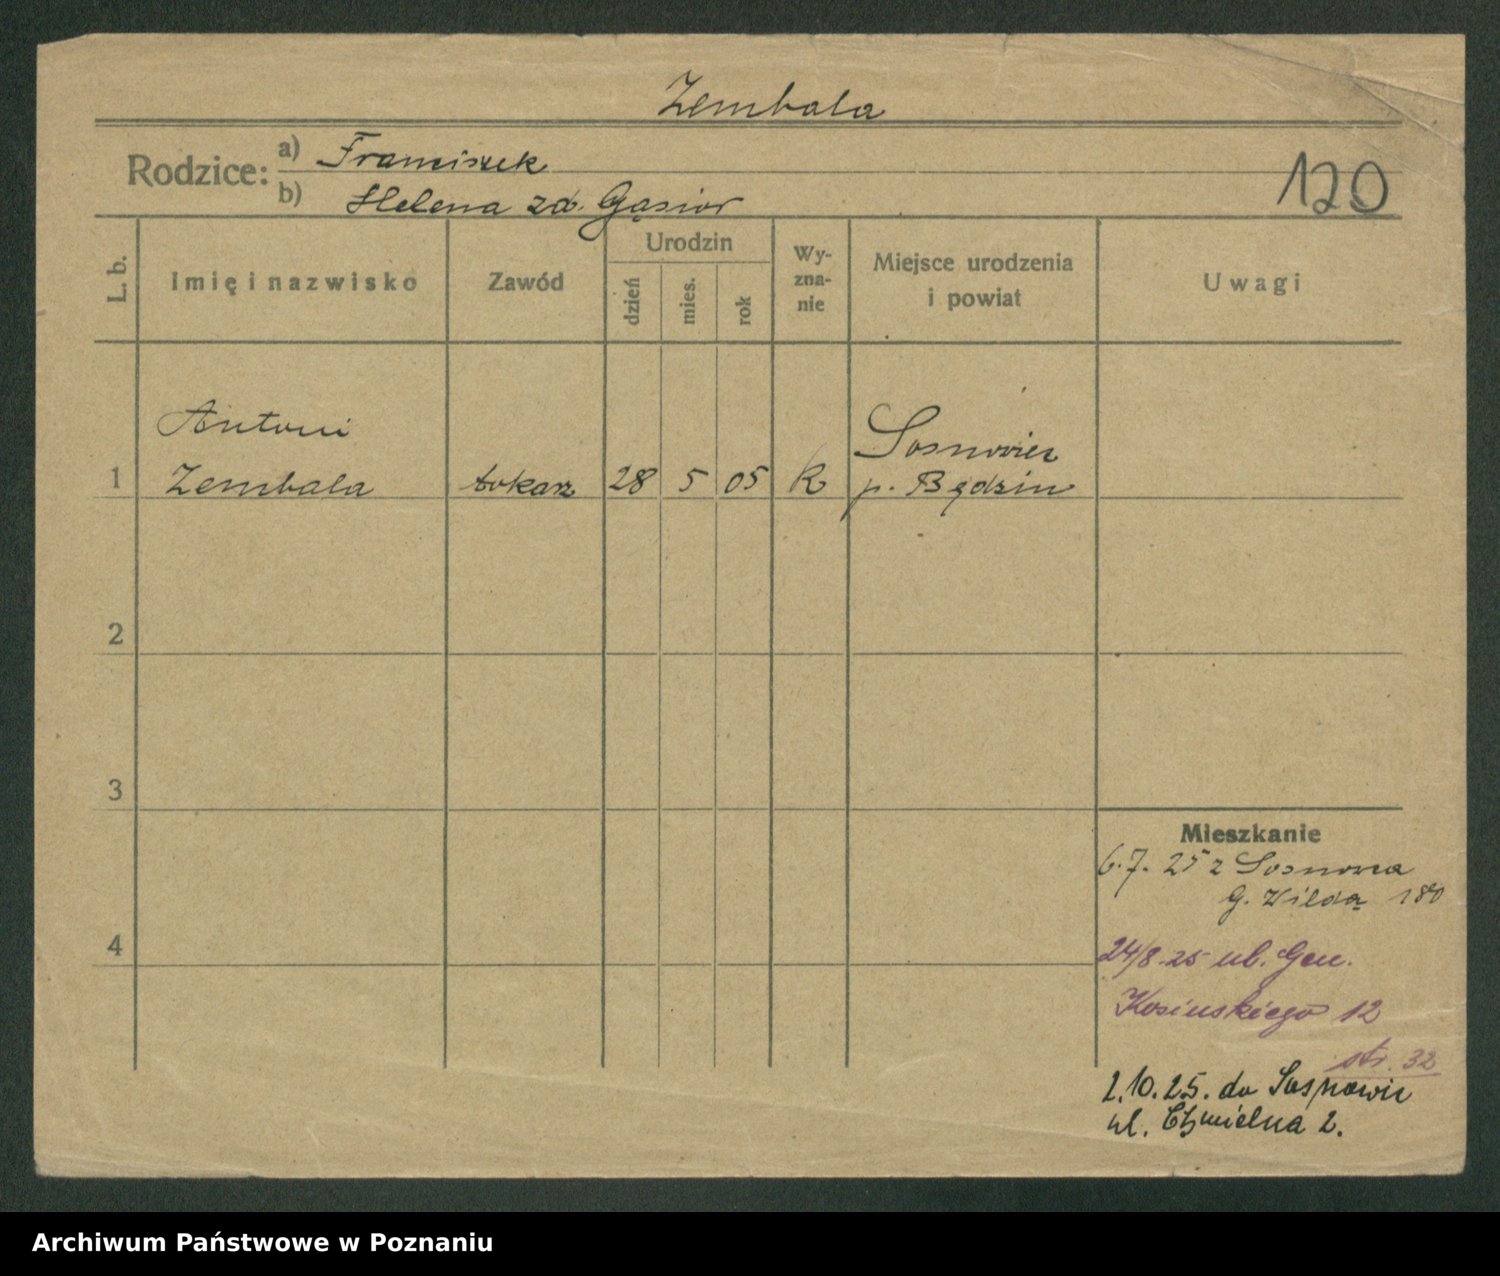 Zembala
Rodzice: a) Franciszek
b) Helena zd. Gąsior
120
L. b.
Imię i nazwisko
Zawód
Urodzin
dzień
mies.
rok
Wy-
zna-
nie
Miejsce urodzenia
i powiat
Uwagi
Antoni
Sosnowiec
1 Zembala tokarz 28 5 05 K p. Będzin
2
3
4
Mieszkanie
6.7. 25 z Sosnowca
G. Wilda 180
24/8 25 ul. Gen.
Kosinskiego 12
str. 32
2.10.25. do Sosnowic
ul. Chmielna 2.
Archiwum Państwowe w Poznaniu